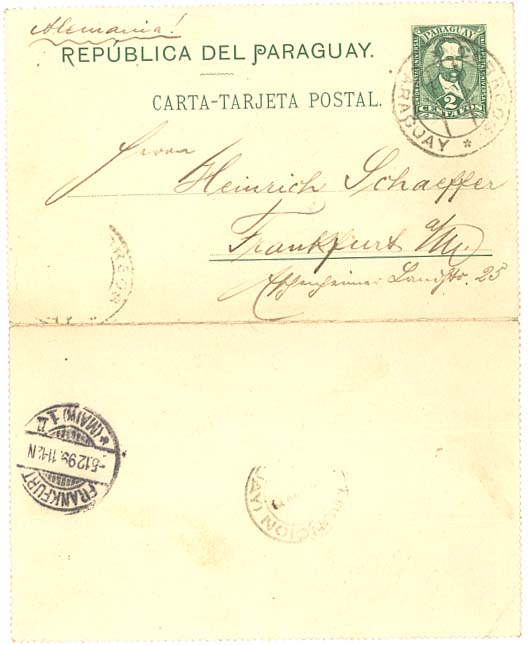 Alemania!
REPÚBLICA DEL PARAGUAY.
CARTA-TARJETA POSTAL.
PARAGUAY
2
CENTAVOS
PARAGUAY *
Herrn
Heinrich Schaeffer
Frankfurt a/M.
Eschenheimer Landstr. 25
* (MAIN) 1
11-12 N
FRANKFURT